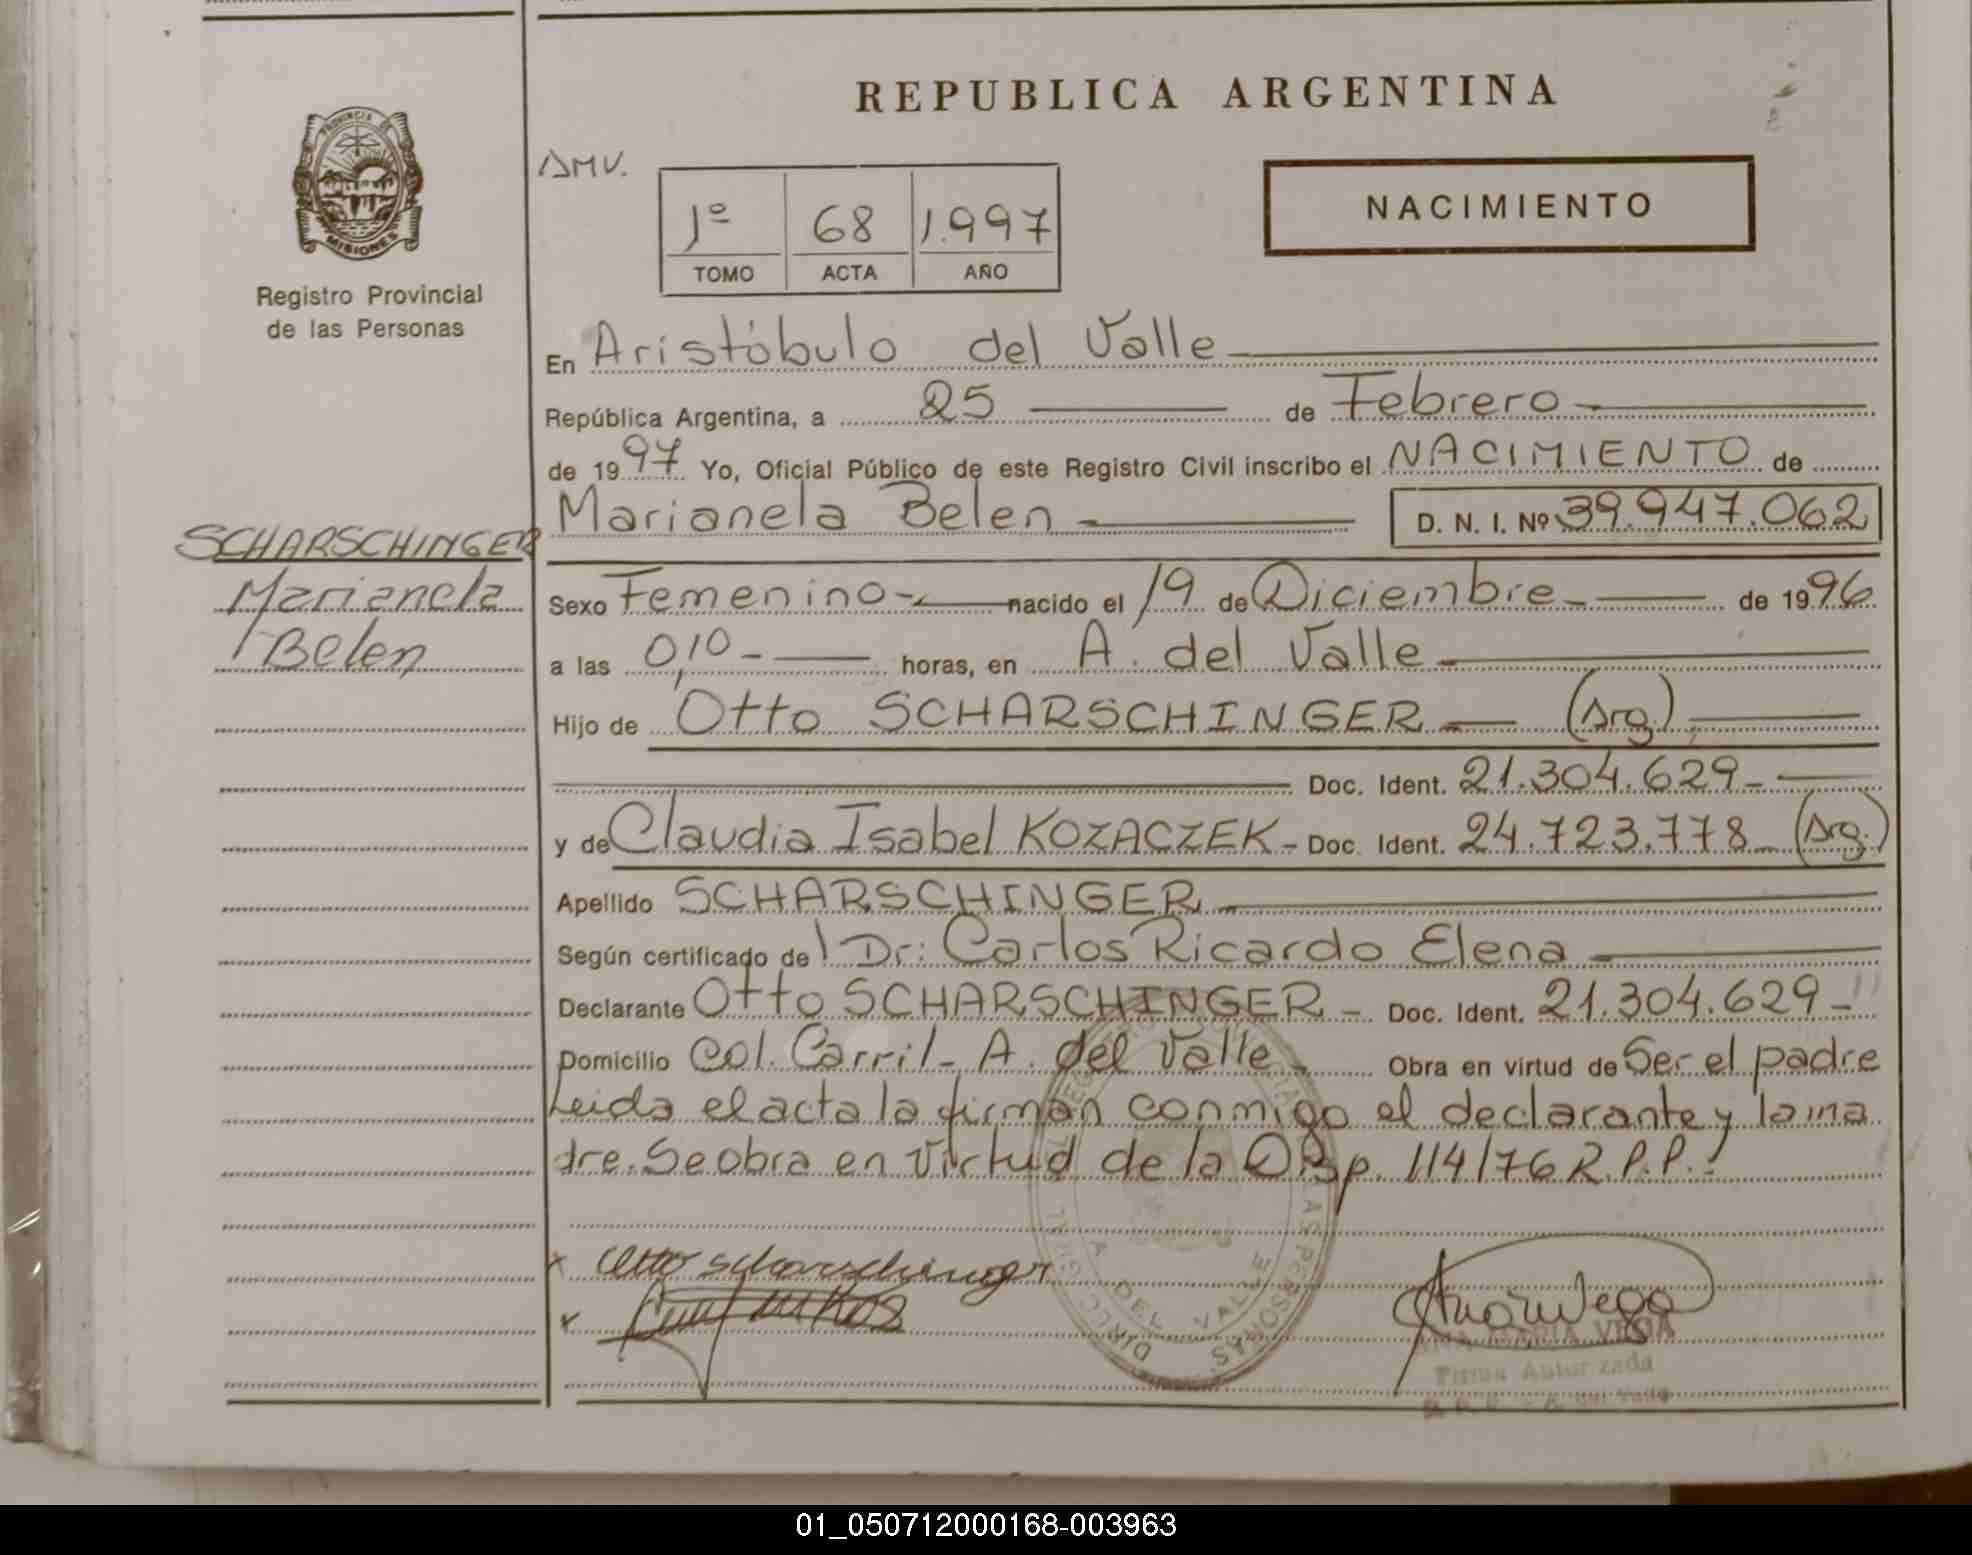 REPUBLICA ARGENTINA
PROVINCIA DE
MISIONES
Registro Provincial
de las Personas
AMV.
1º 68 1.997
TOMO ACTA AÑO
NACIMIENTO
En Aristóbulo del Valle
República Argentina, a 25 de Febrero
de 1997 Yo, Oficial Público de este Registro Civil inscribo el NACIMIENTO de
Marianela Belen D. N. I. Nº 39.947.062
SCHARSCHINGER
Marianela
Belen
Sexo Femenino nacido el 19 de Diciembre de 1996
a las 0,10 horas, en A. del Valle
Hijo de Otto SCHARSCHINGER (Arg.)
Doc. Ident. 21.304.629
y de Claudia Isabel KOZACZEK Doc. Ident. 24.723.778 (Arg.)
Apellido SCHARSCHINGER
Según certificado de Dr: Carlos Ricardo Elena
Declarante OttO SCHARSCHINGER Doc. Ident. 21.304.629
Domicilio Col. Carril A. del Valle Obra en virtud de Ser el padre
Leida el acta la firman conmigo el declarante y la ma
dre. Se obra en virtud de la Disp. 114/76 R.P.P.
Otto scharschinger
A DEL VALLE
PERSONAS
ANA MARIA VEGA
Firma Autorizada
A. del Valle
01_050712000168-003963